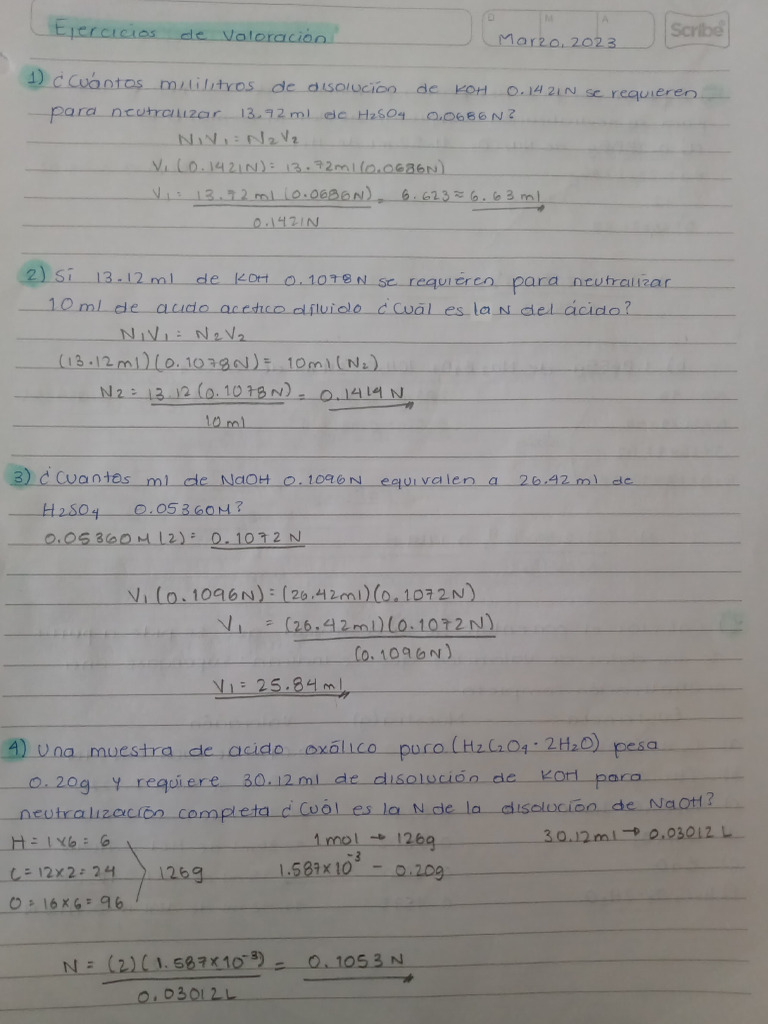 Ejercicios de Valoración
D M A
Marzo, 2023
Scribe
1) ¿Cuántos mililitros de disolución de KOH 0.1421N se requieren
para neutralizar 13.72ml de H₂SO₄ 0.0686N?
N₁V₁ = N₂V₂
V₁ (0.1421N) = 13.72ml (0.0686N)
V₁ = 13.72 ml (0.0686N) = 6.623 ≈ 6.63 ml
0.1421N
2) Si 13.12ml de KOH 0.1078N se requieren para neutralizar
10ml de acido acetico diluido ¿Cuál es la N del ácido?
N₁V₁ = N₂V₂
(13.12ml)(0.1078N) = 10ml (N₂)
N₂ = 13.12 (0.1078N) = 0.1414 N
10 ml
3) ¿Cuantos ml de NaOH 0.1096N equivalen a 26.42 ml de
H₂SO₄ 0.05360M?
0.05360M (2) = 0.1072 N
V₁ (0.1096N) = (26.42ml)(0.1072N)
V₁ = (26.42ml)(0.1072N)
(0.1096N)
V₁ = 25.84 ml
4) Una muestra de acido oxálico puro (H₂C₂O₄ · 2H₂O) pesa
0.20g y requiere 30.12ml de disolución de KOH para
neutralización completa ¿Cuál es la N de la disolución de NaOH?
H = 1x6 = 6 1 mol → 126g 30.12ml → 0.03012 L
C = 12x2 = 24 126g 1.587x10⁻³ - 0.20g
O = 16x6 = 96
N = (2)(1.587x10⁻³) = 0.1053 N
0.03012 L